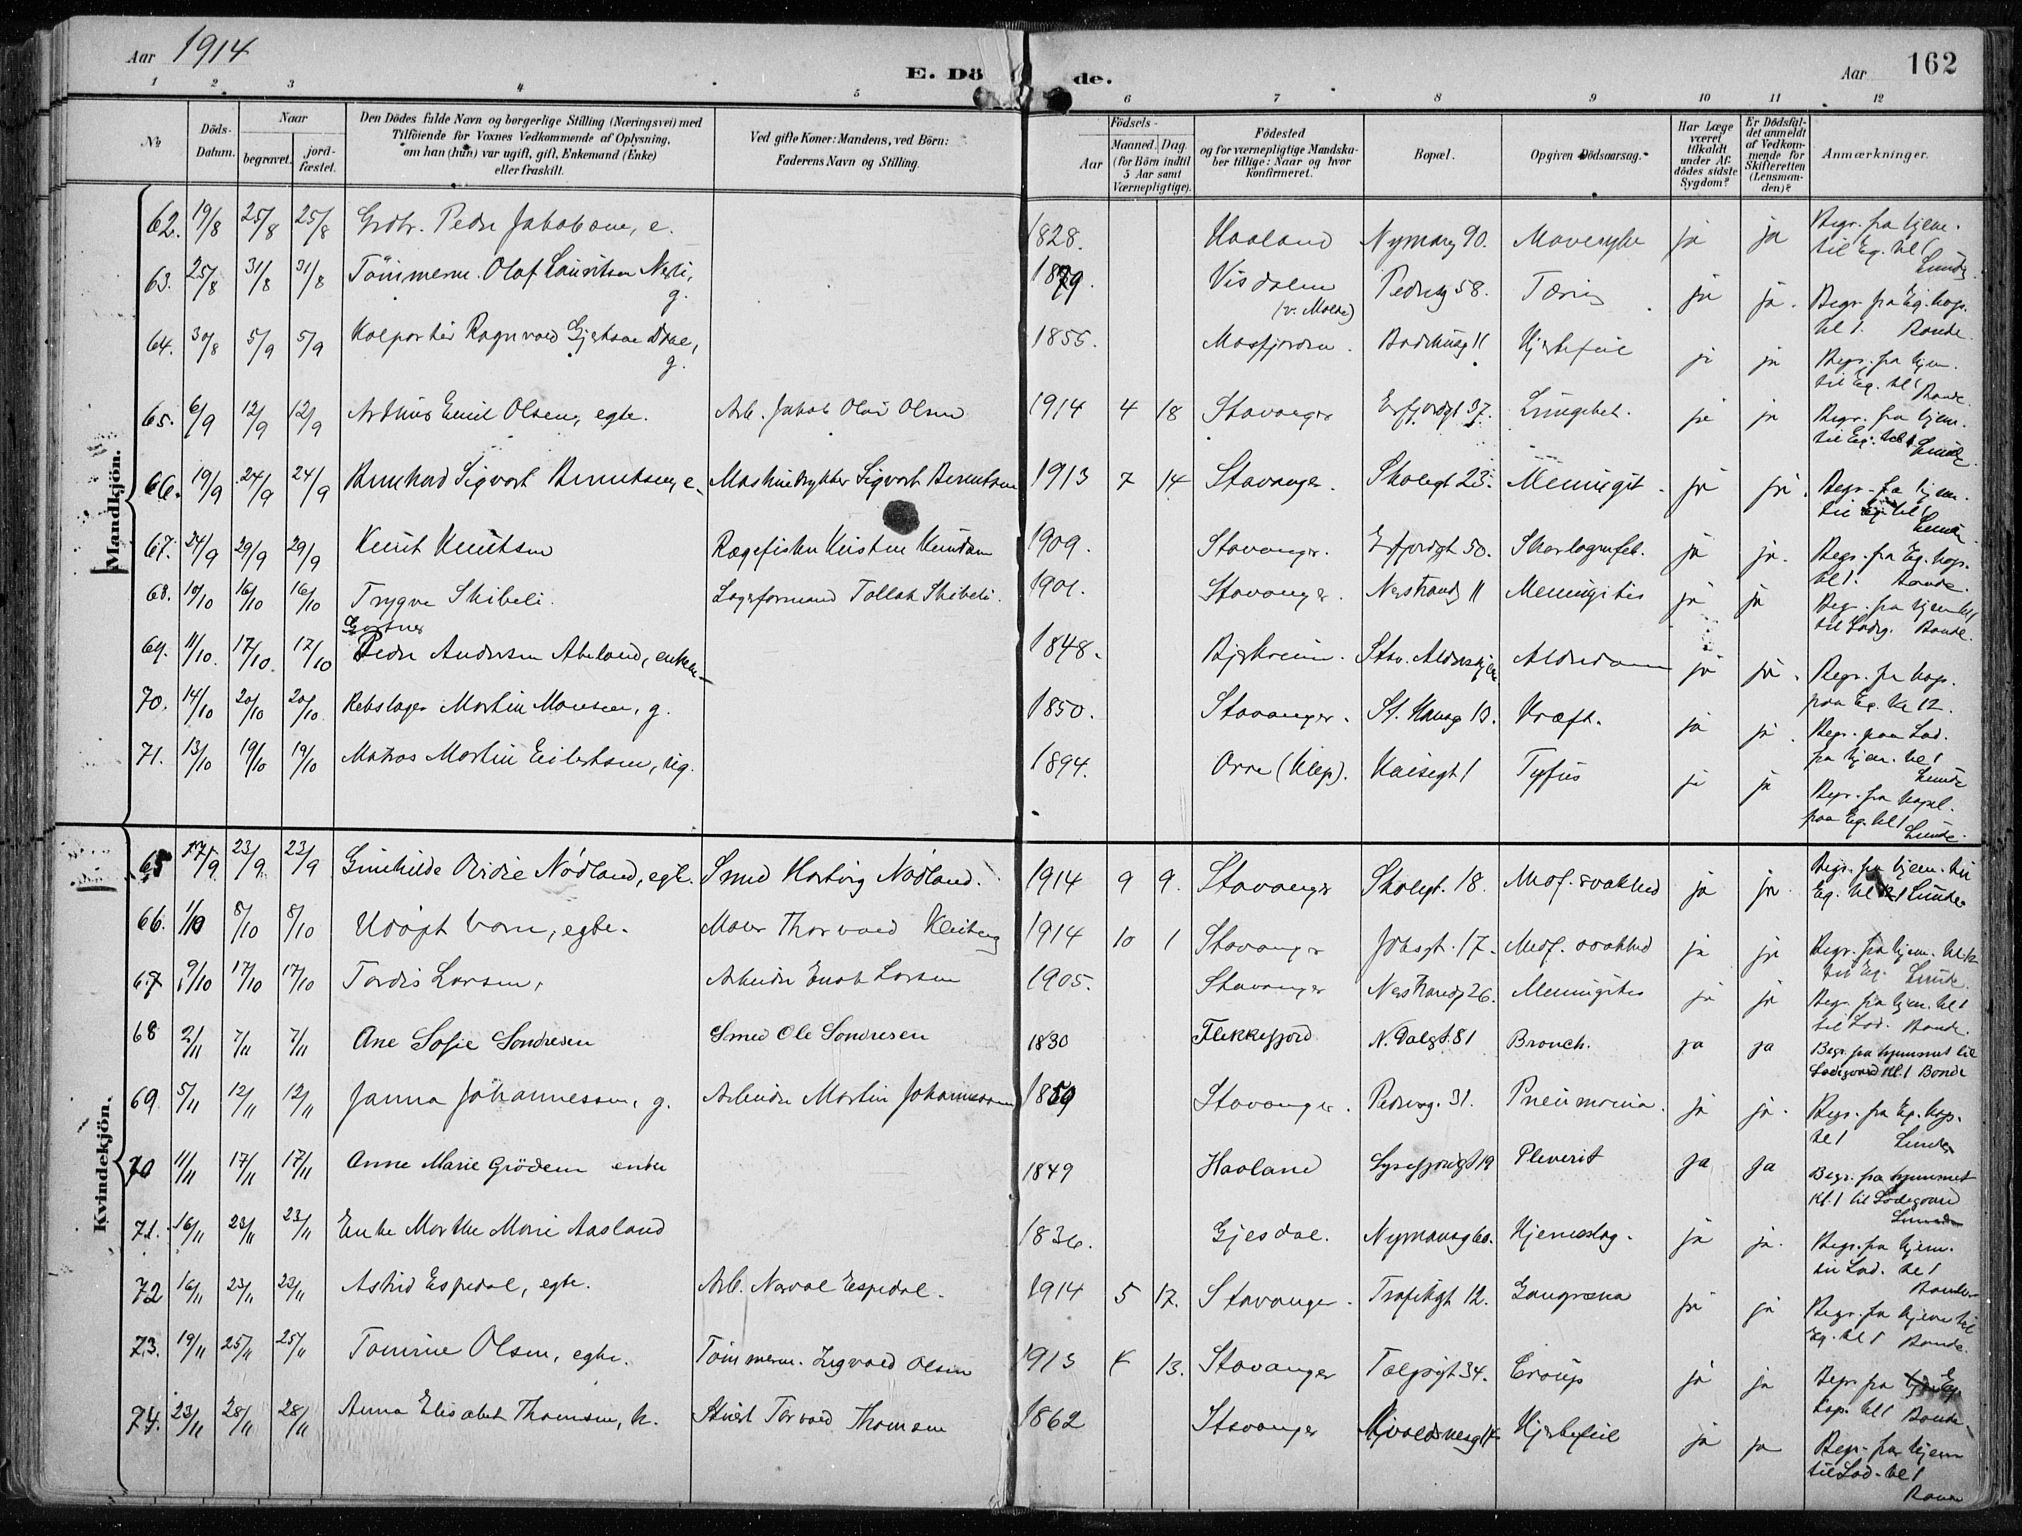 Aar 1914
E. Dö de.
Aar 162
1 2 3 4 5 6 7 8 9 10 11 12
No
Döds-Datum.
Naar
begravet.
jordfæstet.
Den Dödes fulde Navn og borgerlige Stilling (Næringsvei) med
Tilföiende for Voxnes Vedkommende af Oplysning,
om han (hun) var ugift, gift, Enkemand (Enke)
eller fraskilt.
Ved gifte Koner: Mandens, ved Börn:
Faderens Navn og Stilling.
Födsels-
Aar
Maaned. Dag.
(for Börn indtil
5 Aar samt
Værnepligtige).
Födested
og for værnepligtige Mandska-
ber tillige: Naar og hvor
konfirmeret.
Bopæl.
Opgiven Dödsaarsag.
Har Læge
været
tilkaldt
under Af-
dödes sidste
Sygdom?
Er Dödsfal-
det anmeldt
af Vedkom-
mende for
Skifteretten
(Lensman-
den)?
Anmærkninger.
Mandkjön.
62. 19/8 25/8 25/8 Pedr Jakobsen, e. 1828. Haaland Nymansg 90. Mavesyke ja ja Begr. fra hjem. til Eg. kl 1 Lunde
63. 25/8 31/8 31/8 Tömmerm. Olaf Lauritsen g. 1879. Visdalen (v. Molde) Pedersg 58. Tæring ja ja. Begr. fra Eg. hosp. kl 1. Bonde
64. 30/8 5/9 5/9 Kolportör Ragnvald g. 1855. Masfjorden. Badehusg 11 Hjertefeil ja ja Begr. fra hjem. til Eg. kl 1 Bonde.
65. 6/9 12/9 12/9 Arthur Emil Olsen, egte. Arb. Jakob Olai Olsen 1914 4 18 Stavanger Erfjordgt 37. Lungebet. ja ja Begr. fra hjem. til Eg. kl 1 Lunde.
66. 19/9 24/9 24/9 Sigvart Berentsen, e. Maskintrykker Sigvart Berentsen 1913 7 14 Stavanger. Skolegt 23. Meningit. ja ja. Begr. fra hjem. til Eg. kl 1 Lunde
67. 24/9 29/9 29/9 Knut Knutsen 1909. Stavanger. Erfjordgt 50. Skarlagensfeb. ja ja. Begr. fra Eg. hosp. kl 1. Bonde.
68. 10/10 16/10 16/10 Trygve Skibeli. Lagerformand Tollak Skibeli. 1901. Stavanger. Nestrandg 11 Meningites ja ja Begr. fra hjem kl 1 til Ladeg. Bonde.
69. 11/10. 17/10. 17/10 Gartner
Peder Andersen Abeland, enkem. 1848. Bjerkreim. Stav. Aldershjem Alderdom ja ja. Begr. fra hosp. paa Eg. kl 12.
70. 14/10 20/10 20/10. Rebslager Martin Monsen, g. 1850. Stavanger. St. Hansg 13. Kræft. ja ja. Begr. paa Lad. fra hjem. kl 1 Lunde
71. 13/10 19/10 19/10 Matros Martin Eilertsen, ug. 1894. Orre (Klep). Kaisegt 1 Tyfus ja ja Begr. fra kapel. paa Eg. kl 1 Lunde.
Kvindekjön.
65 17/9 23/9 23/9 Gunhilde Nödland, egte. Smed Hartvig Nödland. 1914 9 9. Stavanger Skolegt. 18. Medf. svakhed ja ja. Begr. fra hjem. til Eg. kl 1 Lunde
66. 1/10 8/10 8/10 Udöpt barn, egte. Maler Thorvald Kleiberg 1914 10 1 Stavanger Jobsgt. 17. Medf. svakhed ja ja Begr. fra hjem. kl 12 til Eg. Lunde
67 9/10 17/10 17/10 Tordis Larsen, Arbeider Enok Larsen 1905. Stavanger Nestrandg 26. Meningites ja ja Begr. fra hjem. kl 1 til Lad. Bonde.
68 2/11 7/11 7/11 Ane Sofie Sondresen Smed Ole Sondresen 1830 Flekkefjord N. Dalgt. 81 Bronch. ja ja Begr. fra hjemmet til Ladegaard kl. 1 Bonde
69 5/11 12/11 12/11 Janna Johannessen, g. Arbeider Martin Johannessen 1859 Stavanger. Pedersg. 31. Pneumonia. ja ja. Begr. fra Eg. hosp. kl 1 Lunde
70 11/11 17/11 17/11 Anne Marie Grödem enke 1849 Haaland Lysefjordgt 19 Pleverit ja ja Begr. fra hjemmet kl. 1 til Ladegaard Lunde
71. 16/11 23/11 23/11 Enke Marthe Marie Aasland 1836. Gjesdal. Nymansg 60. Hjerneslag. ja ja. Begr. fra hjem. til Lad. kl 1 Bonde
72 16/11 23/11 23/11 Astrid Espedal, egte. Arb. Espedal. 1914 5 17. Stavanger. Trafikgt 12. Gangræna ja ja Begr. fra hjem til Eg. kl 1 Bonde.
73. 19/11 25/11 25/11 Tomine Olsen, egte. Tömmerm. Ingvald Olsen 1913 13. Stavanger 34. Croup ja ja Begr. fra Eg hosp. kl 1 Bonde.
74. 23/11 28/11 28/11 Anna Elisabet Thomsen, h. Torvald Thomsen 1862 Stavanger Hjertefeil ja ja Begr. fra hjem til Lad. kl 1 Bonde